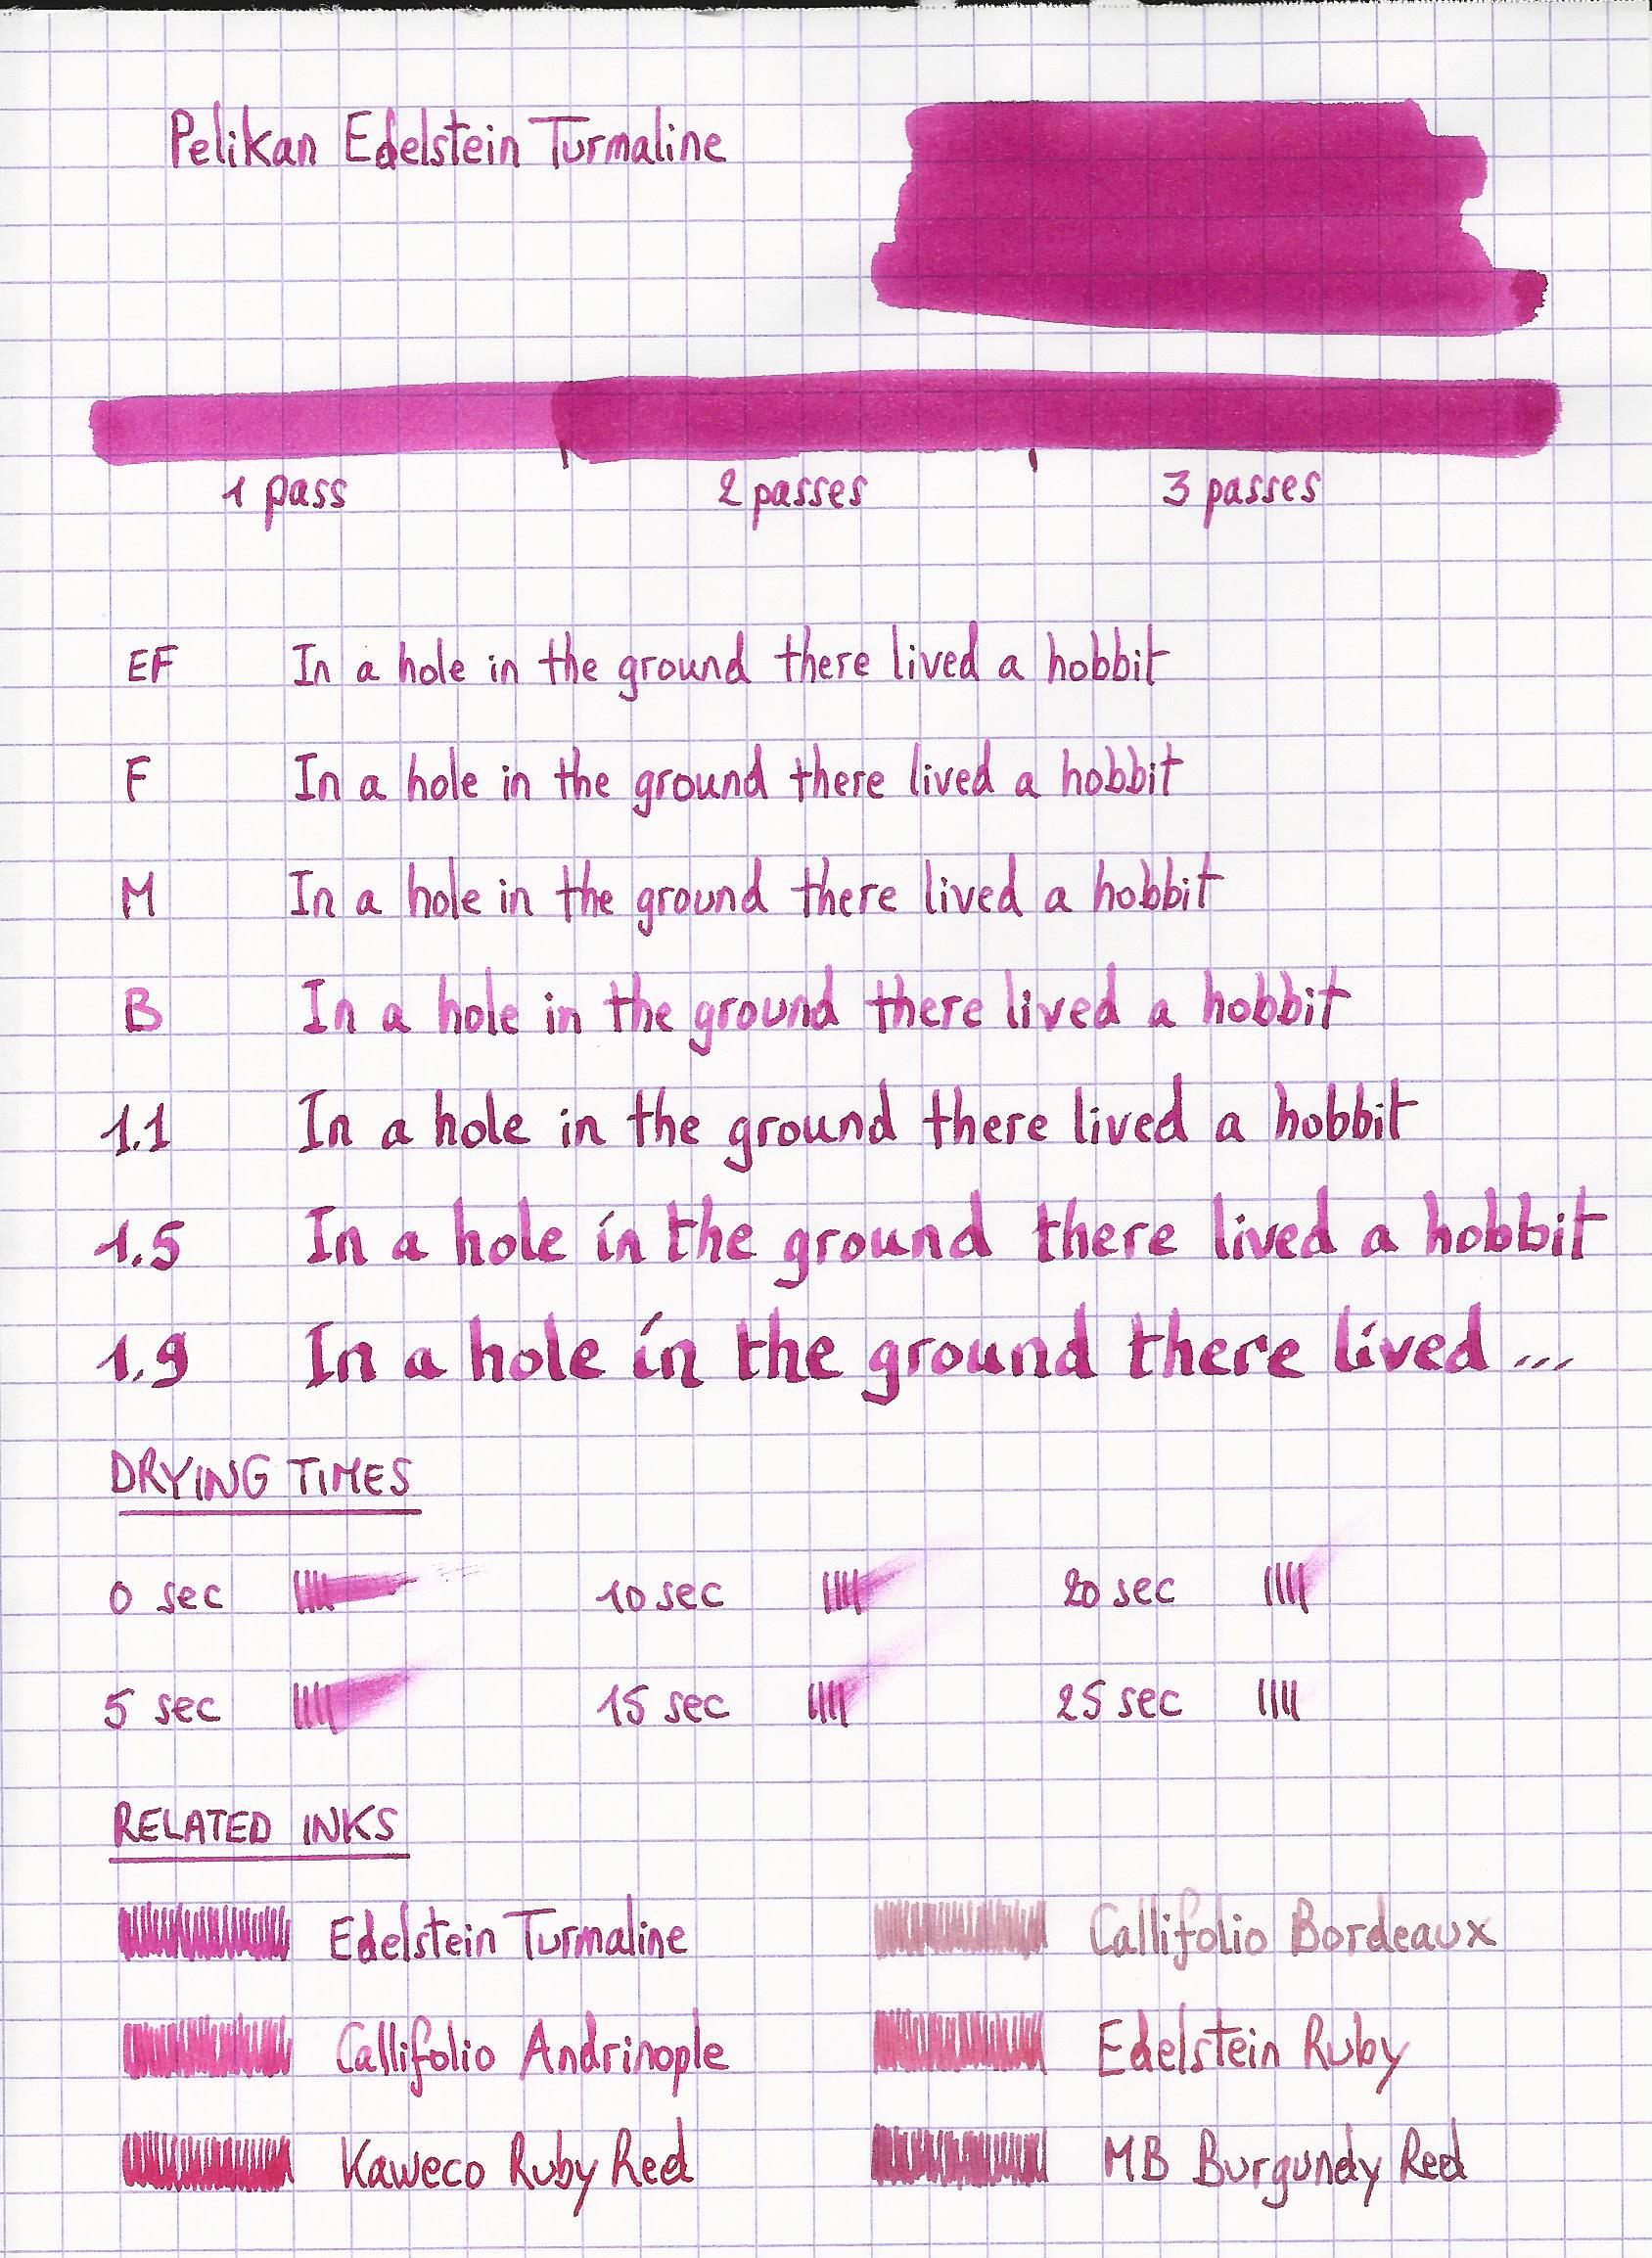 Pelikan Edelstein Turmaline
1 pass 2 passes 3 passes
EF In a hole in the ground there lived a hobbit
F In a hole in the ground there lived a hobbit
M In a hole in the ground there lived a hobbit
B In a hole in the ground there lived a hobbit
1.1 In a hole in the ground there lived a hobbit
1.5 In a hole in the ground there lived a hobbit
1.9 In a hole in the ground there lived ...
DRYING TIMES
0 sec 10 sec 20 sec
5 sec 15 sec 25 sec
RELATED INKS
Edelstein Turmaline Callifolio Bordeaux
Callifolio Andrinople Edelstein Ruby
Kaweco Ruby Red MB Burgundy Red